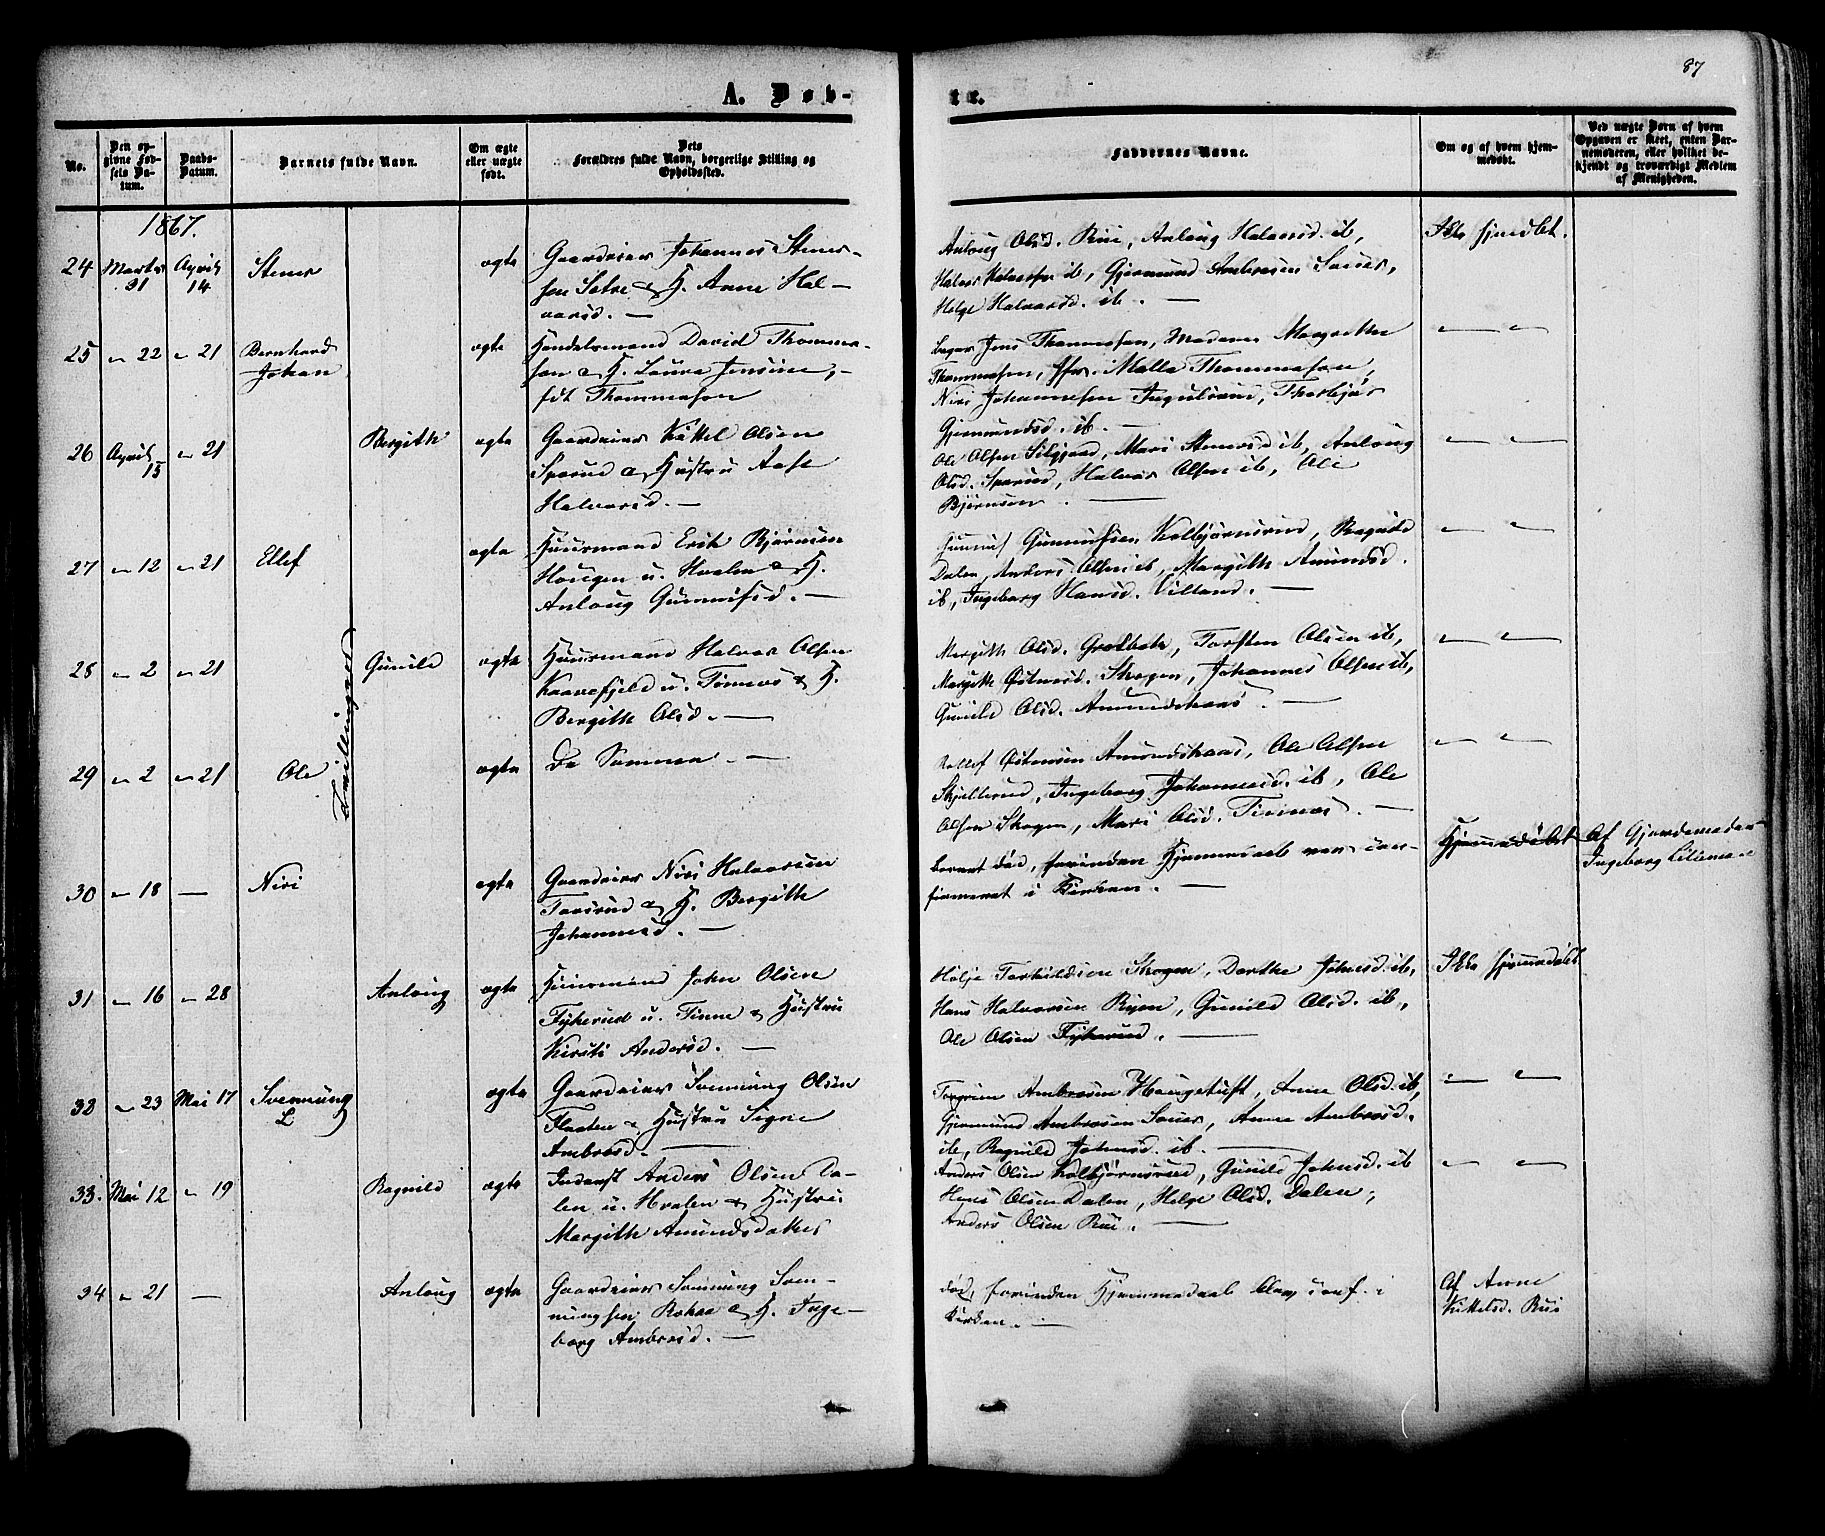 87
A. Døb-
te.
No.
Den op-
givne Fød-
sels Da-
tum.
Daabs-
Datum.
Barnets fulde Navn.
Om ægte
eller uægte
født.
Dets
Forældres fulde Navn, borgerlige Stilling og
Opholdssted.
Faddernes Navne.
Om og af hvem hjem-
medøbt.
Ved uægte Børn af hvem
Opgaven er skeet, enten Bar-
nemoderen, eller hvilket be-
kjendt og troværdigt Medlem
af Menigheden.
1867.
24 Marts 31 April 14 Stener ægte
Gaardeier Johannes Stener-
sen Sætre & H. Anne Hal-
varsd. —
Anlaug Olsd. Rue, Anlaug Halvarsd. ib,
Halvor Halvorsen ib, Gjermund Ambrosen Sauer,
Helge Halvarsd. ib. —
Ikke hjmdbt.
25 " 22 " 21 Bernhard
Johan ægte
Handelsmand David Thomme-
sen & H. Laura Jensine,
fdt Thommesen
Jens Thommesen, Madam Margrethe
Thommesen, Jfr. Malla Thommesen,
Niri Johannesen Ingulsrud, Thorbjør
Gjermundsd. ib. —
" "
26 April 15 " 21 Bergith ægte
Gaardeier Kittel Olsen
Sporud & Hustru Aase
Halvorsd. —
Ole Olsen Silgjord, Mari Stenersd ib, Anlaug
Olsd. Sporud, Halvor Olsen ib, Ole
Bjørnsen. —
" "
27 " 12 " 21 Ellef ægte
Huusmand Erik Bjørnsen
Haugen u. Hvalen & H.
Anlaug Gunnufsd. —
Gunnuf Gunnufsen Kolbjørnsrud, Ragnild
Dalen, Anders Olsen ib, Margith Amundsd.
ib, Ingeborg Hansd. Villand. —
" "
Tvillinger
28 " 2 " 21 Gunild ægte
Huusmand Halvor Olsen
Kaavefjeld u. Tinnes & H.
Bergith Olsd. —
Margith Olsd. Grotbæk, Torsten Olsen ib,
Margith Østensd. Skogen, Johannes Olsen ib,
Gunild Olsd. Amundskaas. —
" "
29 " 2 " 21 Ole ægte
De Samme. —
Østensen Amundskaas, Ole Olsen
Skjellerud, Ingeborg Johannesd. ib, Ole
Olsen Skogen, Mari Olsd. Tinnes. —
" "
30 " 18 — Niri ægte
Gaardeier Niri Halvorsen
Torsrud & H. Bergith
Johannesd. —
Barnet død, forinden Hjemmedaab var con-
firmeret i Kirken. —
Hjemmedøbt
Af Gjordemoder
Ingeborg
31 " 16 " 28 Anlaug ægte
Huusmand John Olsen
Fykerud u. Tinne & Hustru
Kirsti Andersd. —
Helje Torkildsen Skogen, Dorthe Johnsd. ib,
Hans Halvorsen Ryen, Gunild Olsd. ib,
Ole Olsen Fykerud. —
Ikke hjemmedøbt
32 " 23 Mai 17 Svennung
L ægte
Gaardeier Svennung Olsen
Flaaten & Hustru Signe
Ambrosd. —
Torgrim Ambrosen Haugetuft, Anne Olsd. ib,
Gjermund Ambrosen Sauer, Anne Ambrosd.
ib, Ragnild Johnsd. ib. —
" "
33. Mai 12 " 19 Ragnild ægte
Inderst Anders Olsen Da-
len u. Hvalen & Hustru
Margith Amundsdatter
Anders Olsen Kolbjørnsrud, Gunild Johnsd. ib
Hans Olsen Dalen, Helge Olsd. Dalen,
Anders Olsen Rue. —
" "
34 " 21 — Anlaug ægte
Gaardeier Svennung Sven-
nungsen Bakaa & H. Inge-
borg Ambrosd. —
død, forinden Hjemmedaab blev conf. i
Kirken. —
Af Anne
Kittelsd. Rui